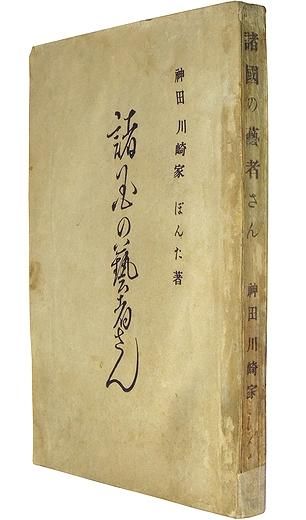 神田 川崎家 ぽんた著
諸国の藝者さん
諸國の藝者さん 神田 川崎家